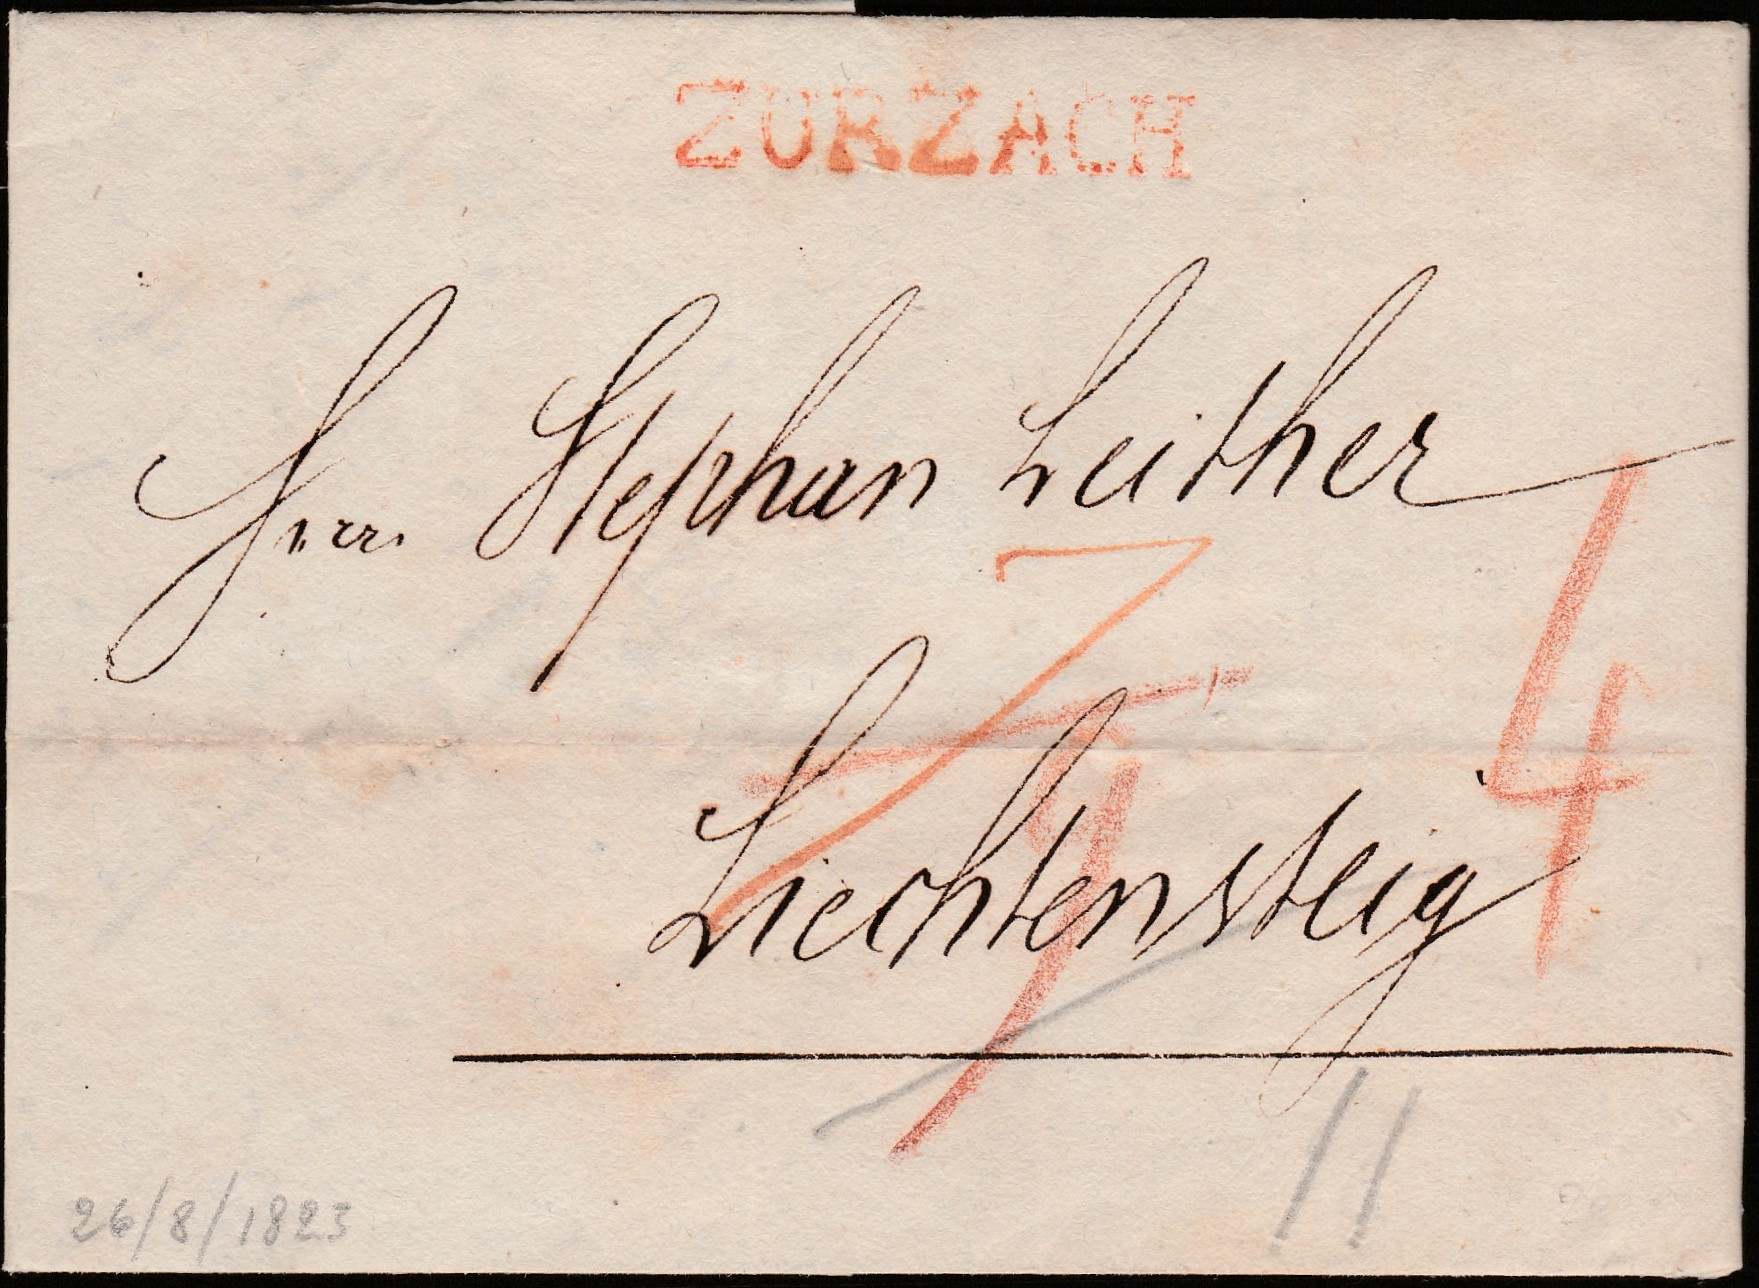 ZURZACH
Herr Stephan Leither
7
4
9
Liechtensteig
11
26/8/1823